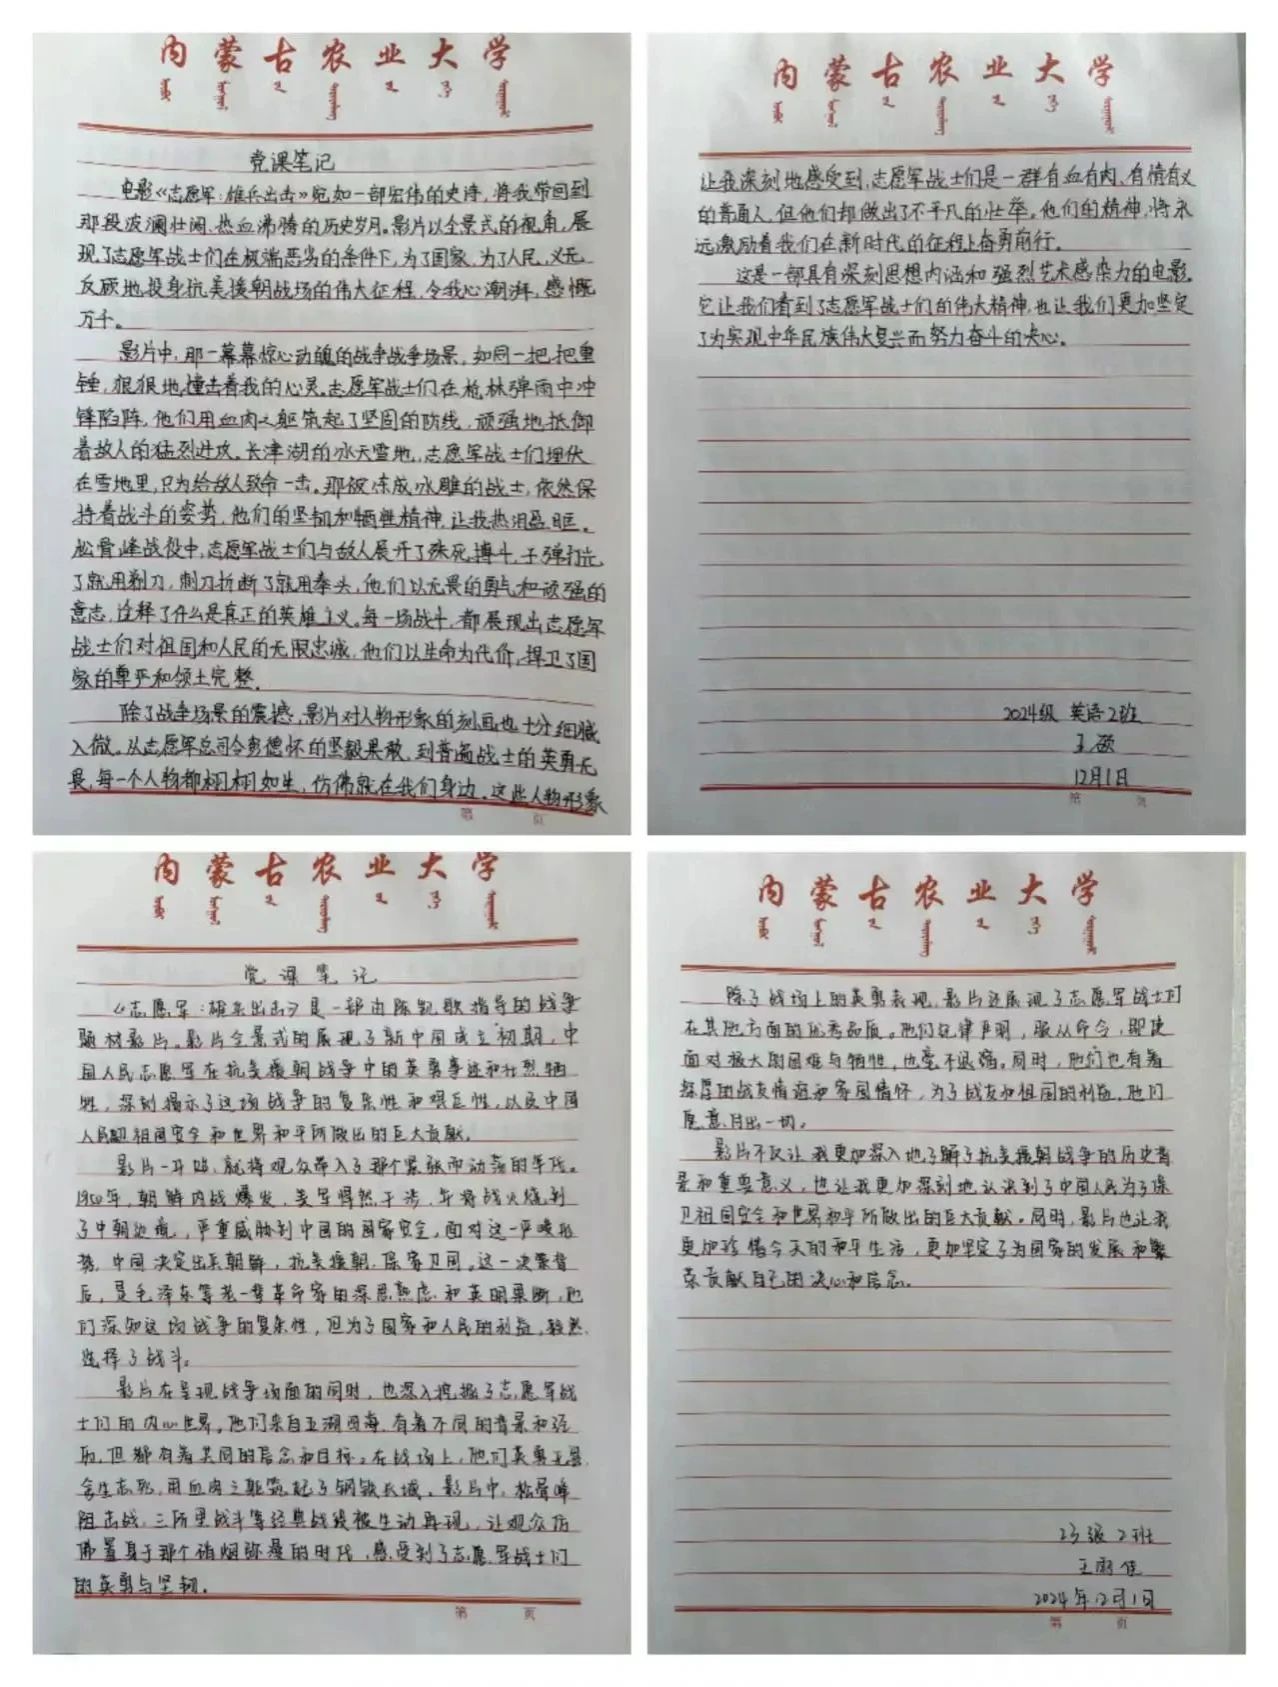 内蒙古农业大学
党课笔记
电影《志愿军:雄兵出击》宛如一部宏伟的史诗,将我带回到
那段波澜壮阔、热血沸腾的历史岁月。影片以全景式的视角,展
现了志愿军战士们在极端恶劣的条件下,为了国家、为了人民,义无
反顾地投身抗美援朝战场的伟大征程,令我心潮湃,感慨
万千。
影片中,那一幕幕惊心动魄的战争战争场景,如同一把把重
锤,狠狠地撞击着我的心灵。志愿军战士们在枪林弹雨中冲
锋陷阵,他们用血肉之躯筑起了坚固的防线,顽强地抵御
着敌人的猛烈进攻。长津湖的冰天雪地,志愿军战士们埋伏
在雪地里,只为给敌人致命一击。那被冻成冰雕的战士,依然保
持着战斗的姿势,他们的坚韧和牺牲精神,让我热泪盈眶。
松骨峰战役中,志愿军战士们与敌人展开了殊死搏斗,子弹打光
了就用剃刀,刺刀折断了就用拳头,他们以无畏的勇气和顽强的
意志,诠释了什么是真正的英雄主义。每一场战斗,都展现出志愿军
战士们对祖国和人民的无限忠诚,他们以生命为代价,捍卫了国
家的尊严和领土完整。
除了战争场景的震撼,影片对人物形象的刻画也十分细腻
入微。从志愿军总司令彭德怀的坚毅果敢,到普通战士的英勇无
畏,每一个人物都栩栩如生,仿佛就在我们身边。这些人物形象
第 页
内蒙古农业大学
让我深刻地感受到,志愿军战士们是一群有血有肉、有情有义
的普通人,但他们却做出了不平凡的壮举。他们的精神,将永
远激励着我们在新时代的征程上奋勇前行。
这是一部具有深刻思想内涵和强烈艺术感染力的电影。
它让我们看到了志愿军战士们的伟大精神,也让我们更加坚定
了为实现中华民族伟大复兴而努力奋斗的决心。
2024级 英语2班
王颂
12月1日
第 页
内蒙古农业大学
党课笔记
《志愿军:雄兵出击》是一部由陈凯歌指导的战争
题材影片。影片全景式的展现了新中国成立初期,中
国人民志愿军在抗美援朝战争中的英勇事迹和壮烈牺
牲,深刻揭示了这场战争的复杂性和艰巨性,以及中国
人民为祖国安全和世界和平所做出的巨大贡献。
影片一开始,就将观众带入了那个紧张而动荡的年代。
1950年,朝鲜内战爆发,美军悍然干涉,并将战火烧到
了中朝边境,严重威胁到中国的国家安全,面对这一严峻形
势,中国决定出兵朝鲜,抗美援朝、保家卫国。这一决策背
后,是毛泽东等老一辈革命家的深思熟虑和英明果断,他
们深知这场战争的复杂性,但为了国家和人民的利益,毅然
选择了战斗。
影片在呈现战争场面的同时,也深入挖掘了志愿军战
士们的内心世界。他们来自五湖四海,有着不同的背景和经
历,但都有着共同的信念和目标。在战场上,他们英勇无畏,
舍生忘死,用血肉之躯筑起了钢铁长城。影片中,松骨峰
阻击战、三所里战斗等经典战役被生动再现,让观众仿
佛置身于那个硝烟弥漫的时代,感受到了志愿军战士们
的英勇与坚韧。
第 页
内蒙古农业大学
除了战场上的英勇表现,影片还展现了志愿军战士们
在其他方面的优秀品质。他们纪律严明,服从命令,即使
面对极大的困难与牺牲,也毫不退缩。同时,他们也有着
深厚的战友情谊和家国情怀,为了战友和祖国的利益,他们
愿意付出一切。
影片不仅让我更加深入地了解了抗美援朝战争的历史背
景和重要意义,也让我更加深刻地认识到了中国人民为了保
卫祖国安全和世界和平所做出的巨大贡献。同时,影片也让我
更加珍惜今天的和平生活,更加坚定了为国家的发展和繁
荣贡献自己的决心和信念。
2班
王雨佳
2024年12月1日
第 页